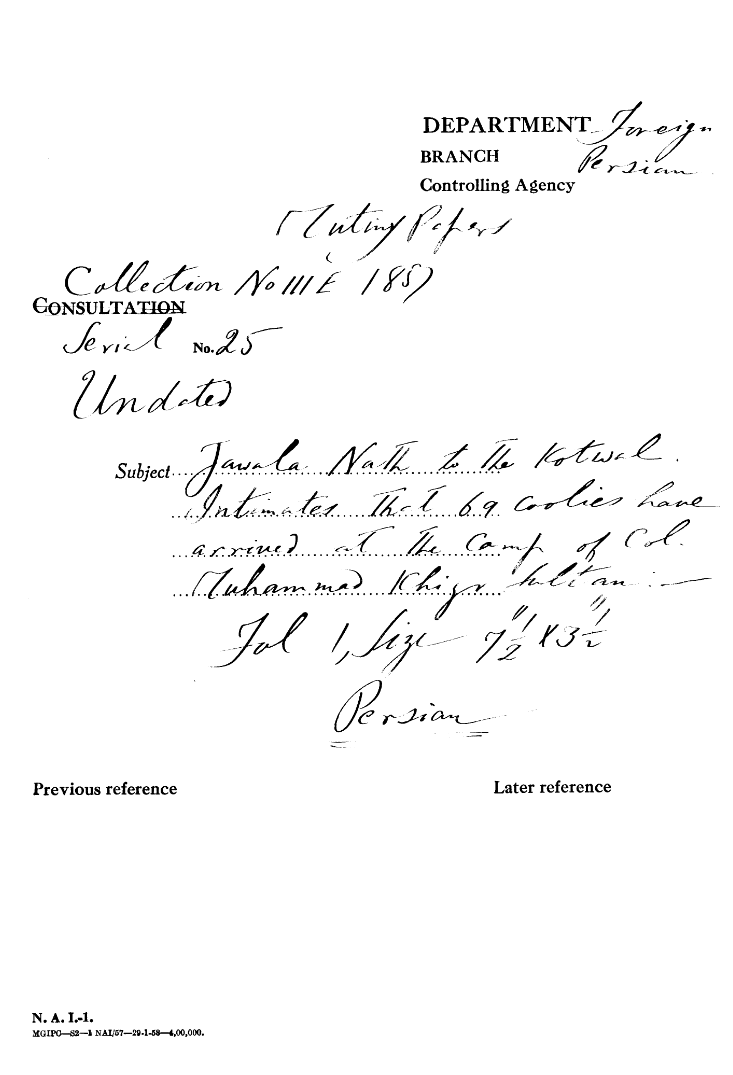 DEPARTMENT Foreign
BRANCH Persian
Controlling Agency
Mutiny Papers
Collection No III E 1857
CONSULTATION
Serial No. 25
Undated
Subject Jawala Nath to the Kotwal.
Intimates that 69 coolies have
arrived at the Camp of Col.
Muhammad Khizr Sultan:—
Fol 1, Size 7½" X 3½"
Persian
Previous reference Later reference
N. A. I.-1.
MGIPC—S2—1 NAI/57—29-1-58—4,00,000.